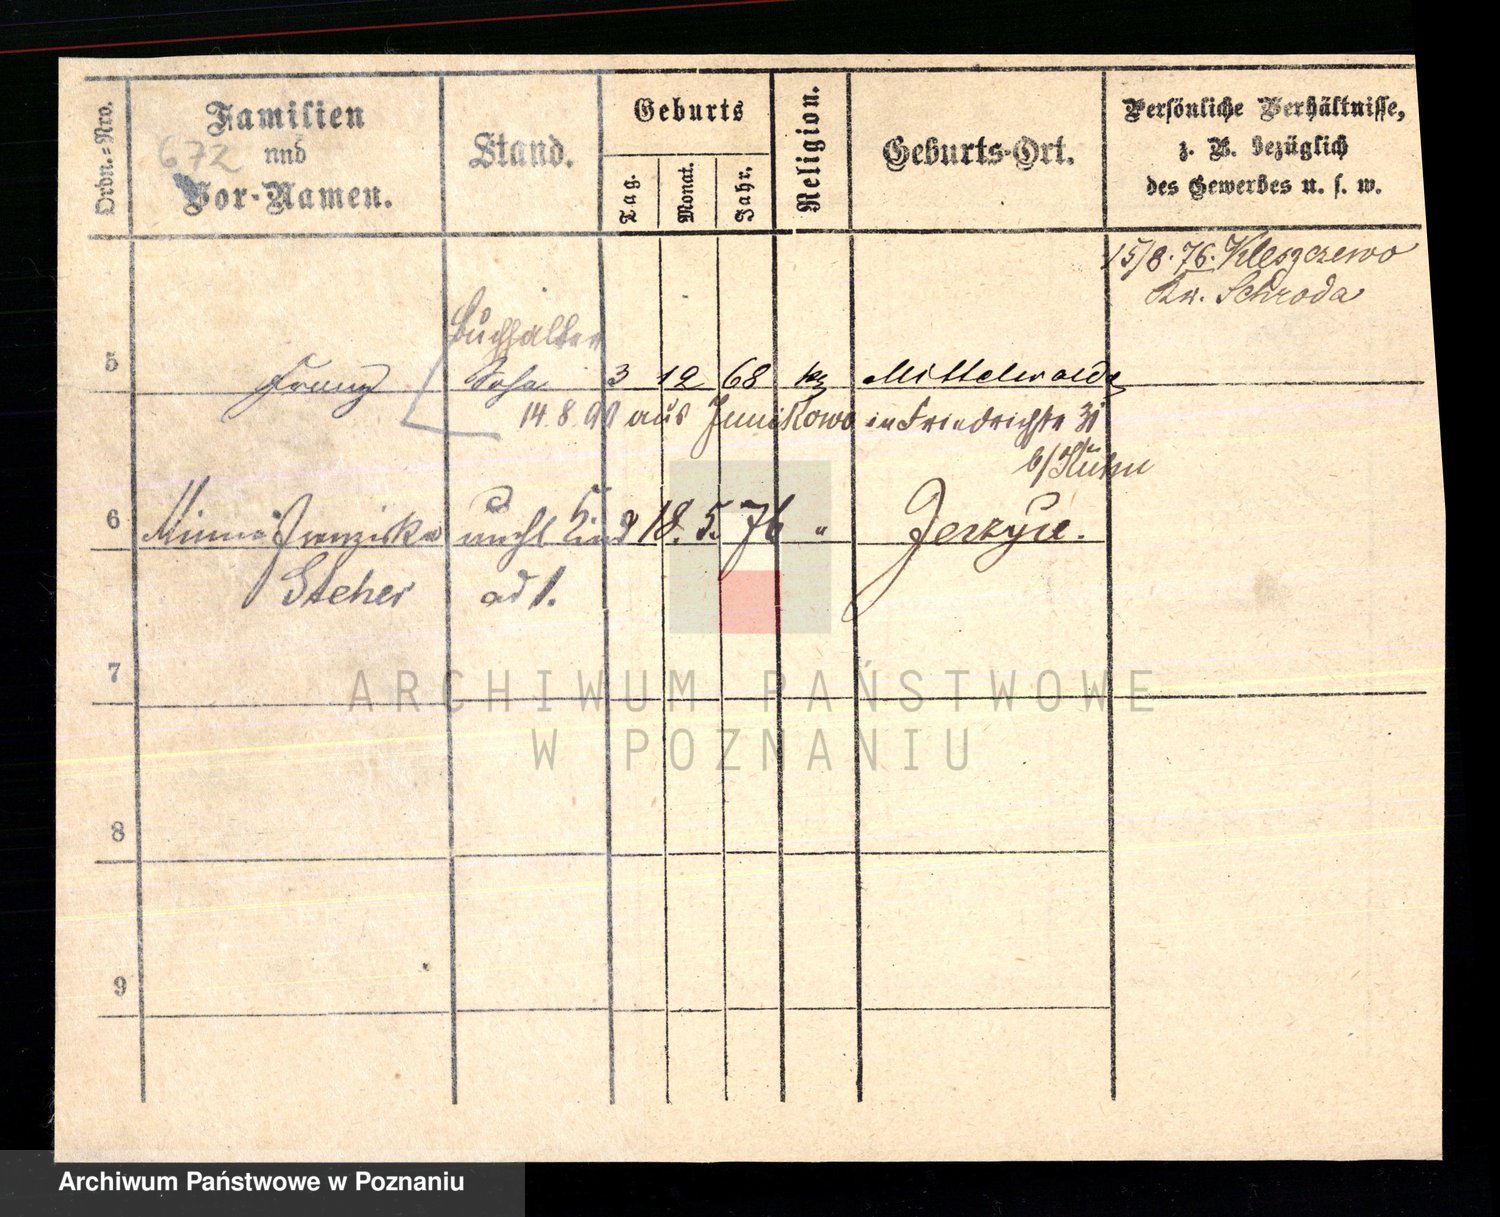 Ordn.-Nro.
Familien
und
Vor-Namen.
672
Stand.
Geburts
Tag.
Monat.
Jahr.
Religion.
Geburts-Ort.
Persönliche Verhältnisse,
z. B. bezüglich
des Gewerbes u. s. w.
15/8. 76. Kleszczewo
Kr. Schroda
Buchhalter
5 Franz Sohn 3 12 68 Mittelwalde
14. 8. 90 aus Junikowo in Friedrichstr 31
b/ Kuhn
6 Minna Franziska unehl Kind 18. 5. 76 " Jerzyce.
Stehr ad 1.
7
8
9
ARCHIWUM PAŃSTWOWE
W POZNANIU
Archiwum Państwowe w Poznaniu